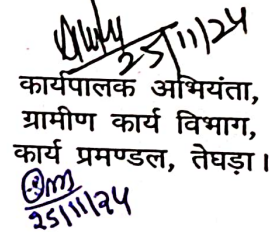 25/11/24
कार्यपालक अभियंता,
ग्रामीण कार्य विभाग,
कार्य प्रमण्डल, तेघड़ा।
25/11/24